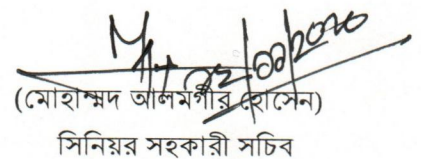 (মোহাম্মদ আলমগীর হোসেন)
সিনিয়র সহকারী সচিব